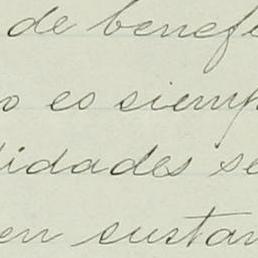 de benefi
o es siemp
lidades se
en sustan